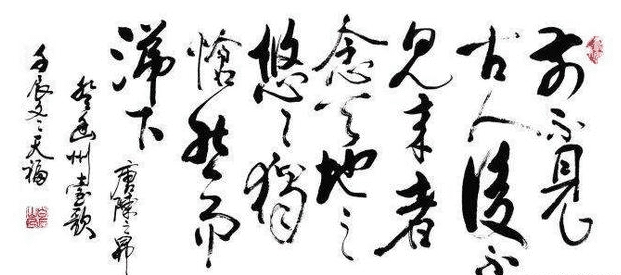 前不見
古人後不
见来者
念天地之
悠〻獨
愴然而
涕下
唐陳子昂
登幽州臺歌
壬辰天福